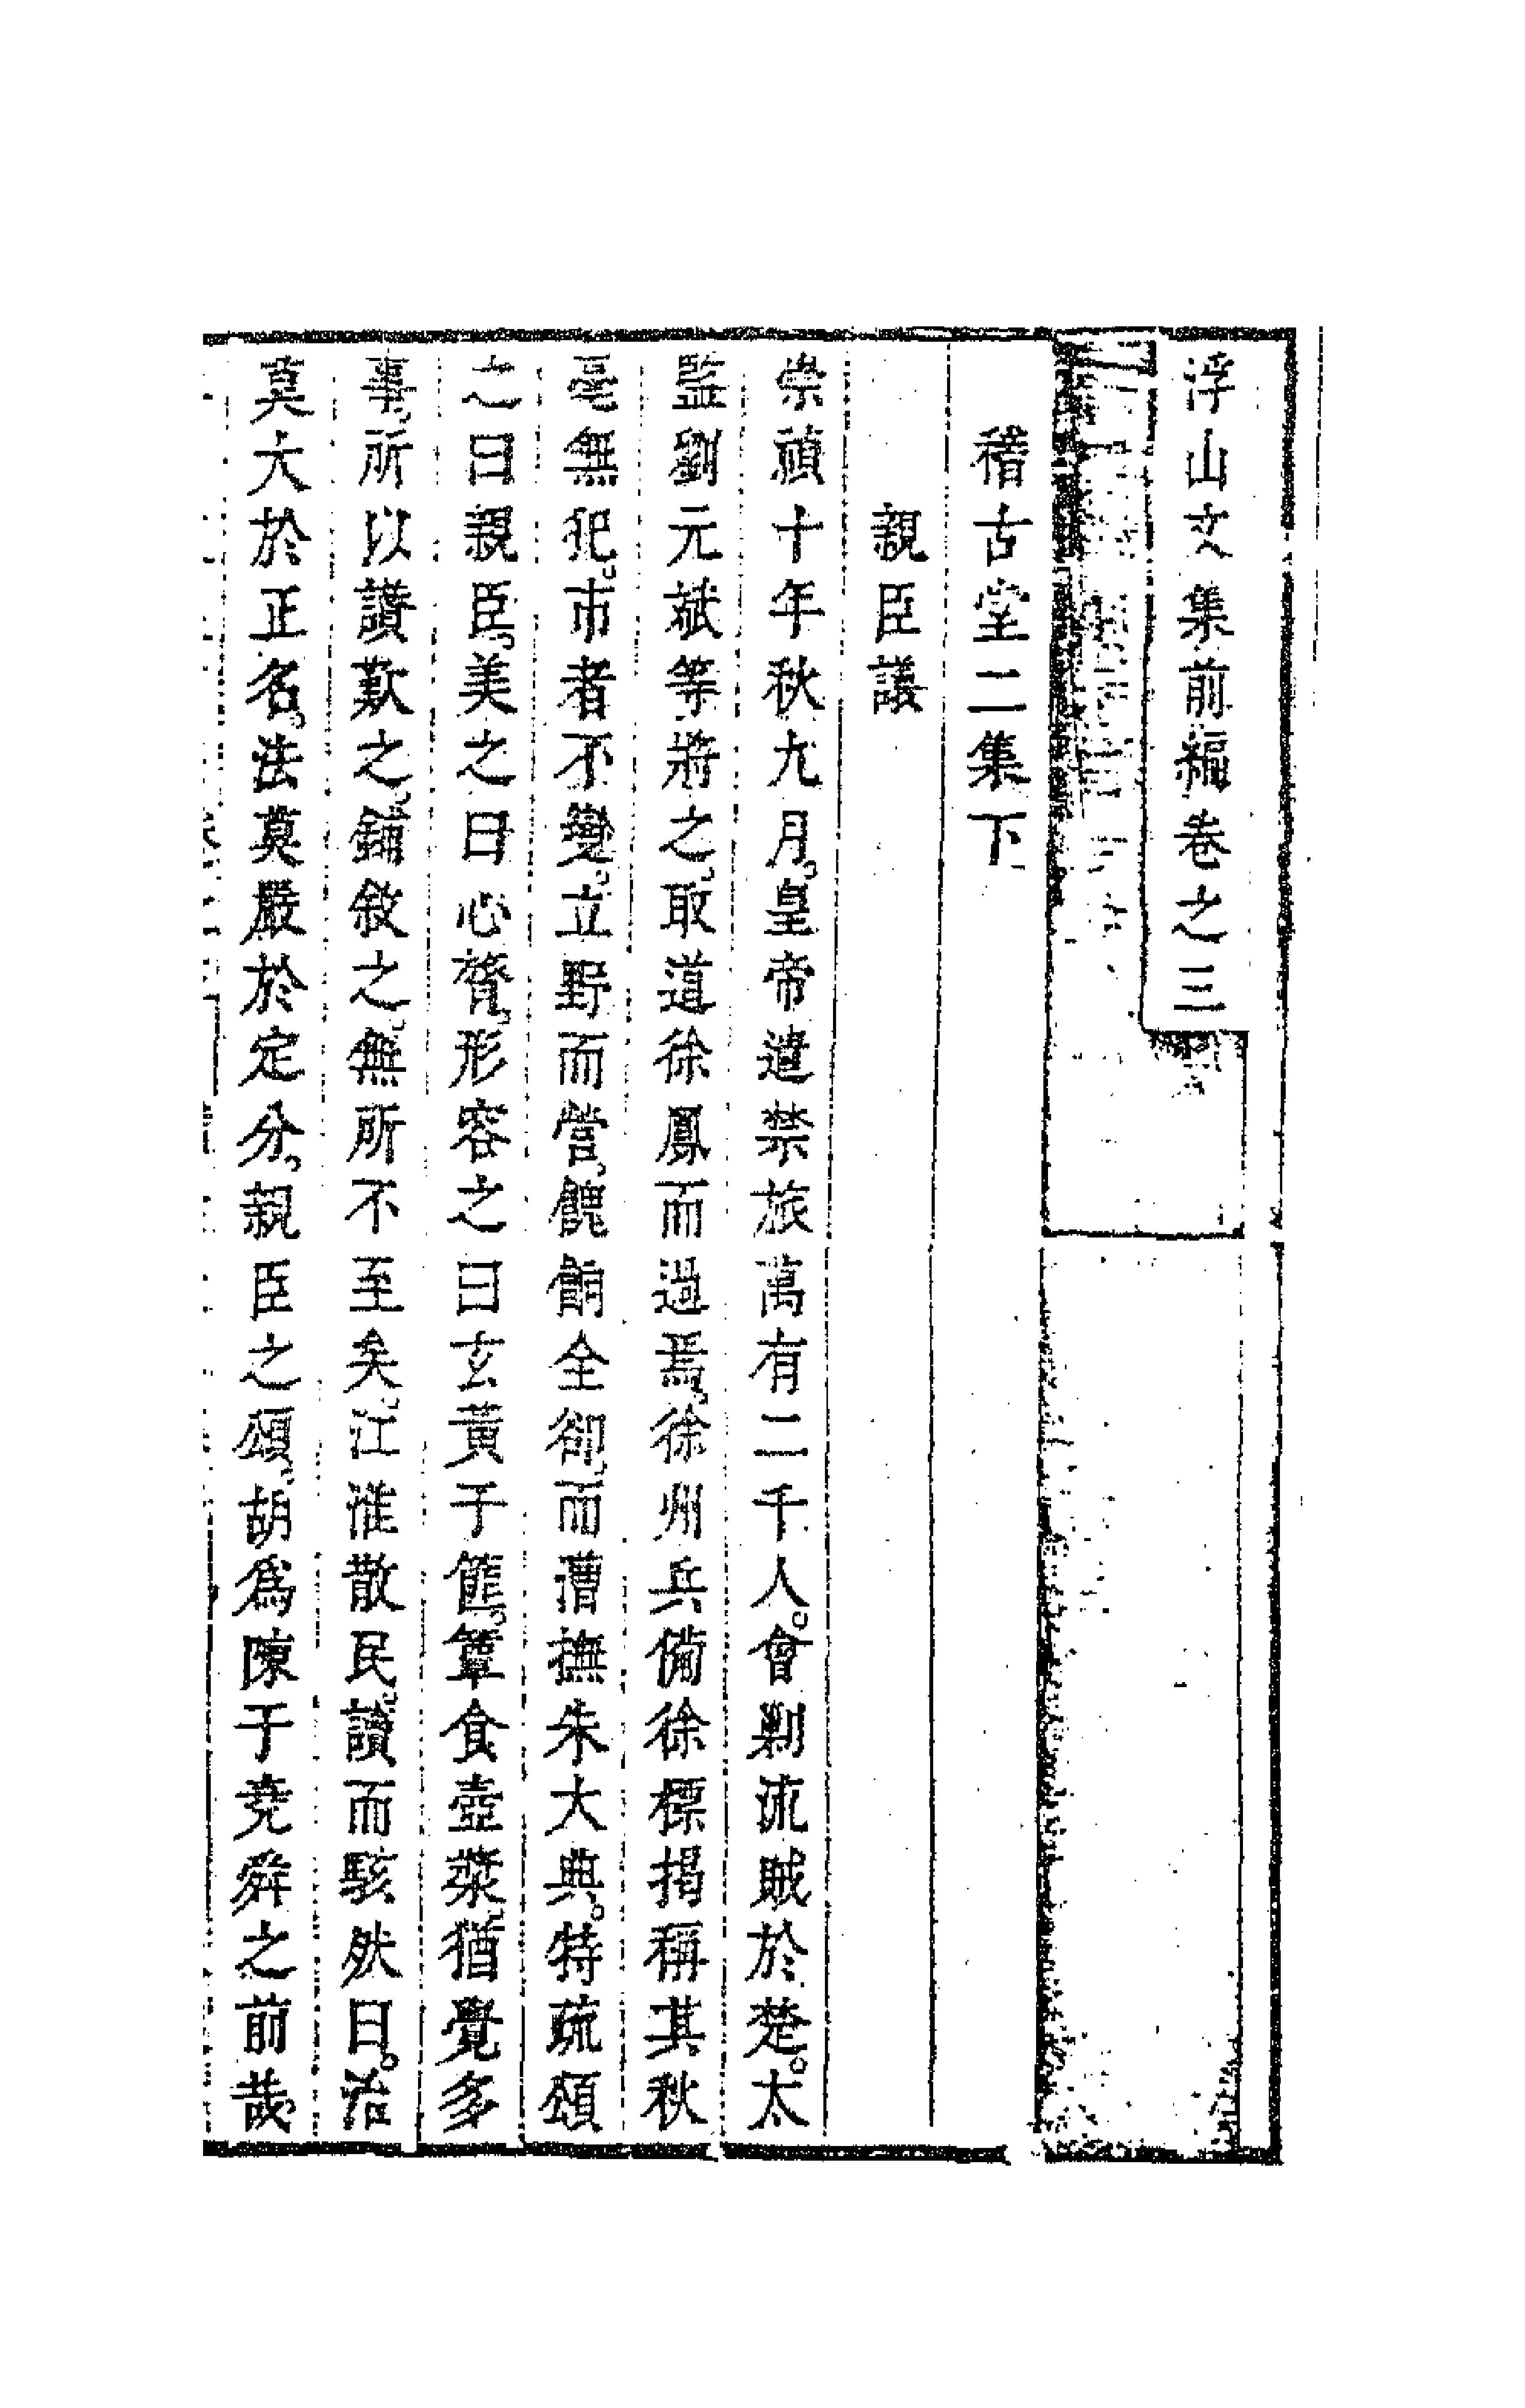 浮山文集前編卷之三
稽古堂二集下
親臣議
崇禎十年秋九月皇帝遣禁旅萬有二千人會剿流賊於楚太
監劉元斌等將之取道徐鳳而過焉徐州兵備徐標揭稱其秋
毫無犯市者不變立野而營餽餉全卻而漕撫朱大典特疏頌
之曰親臣美之曰心膂形容之曰玄黃于篚簞食壺漿猶覺多
事所以讚歎之鋪敘之無所不至矣江淮散民讀而駭然曰治
莫大於正名法莫嚴於定分親臣之頌胡爲陳于堯舜之前哉